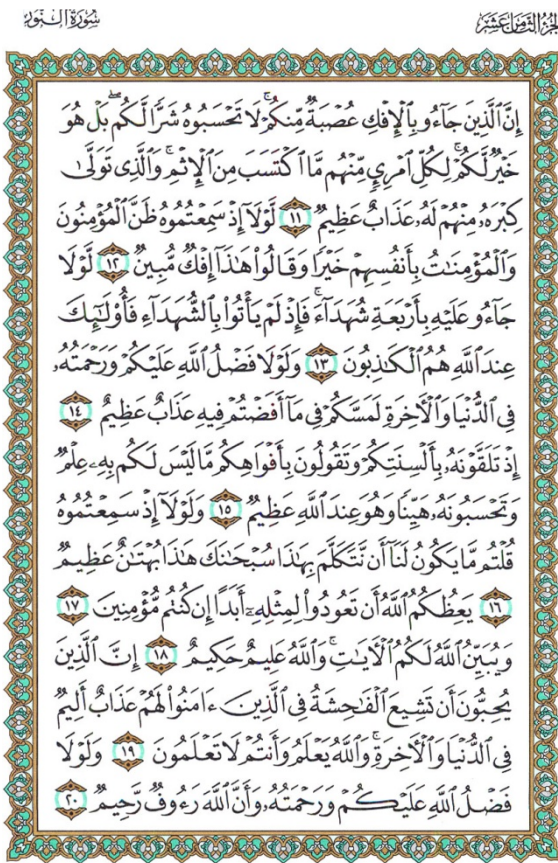 الجزء الثامن عشر
سورة النور
إِنَّ ٱلَّذِينَ جَآءُو بِٱلْإِفْكِ عُصْبَةٌ مِّنكُمْ ۚ لَا تَحْسَبُوهُ شَرًّا لَّكُم ۖ بَلْ هُوَ
خَيْرٌ لَّكُمْ ۚ لِكُلِّ ٱمْرِئٍ مِّنْهُم مَّا ٱكْتَسَبَ مِنَ ٱلْإِثْمِ ۚ وَٱلَّذِى تَوَلَّىٰ
كِبْرَهُۥ مِنْهُمْ لَهُۥ عَذَابٌ عَظِيمٌ ١١ لَّوْلَآ إِذْ سَمِعْتُمُوهُ ظَنَّ ٱلْمُؤْمِنُونَ
وَٱلْمُؤْمِنَـٰتُ بِأَنفُسِهِمْ خَيْرًا وَقَالُوا۟ هَـٰذَآ إِفْكٌ مُّبِينٌ ١٢ لَّوْلَا
جَآءُو عَلَيْهِ بِأَرْبَعَةِ شُهَدَآءَ ۚ فَإِذْ لَمْ يَأْتُوا۟ بِٱلشُّهَدَآءِ فَأُو۟لَـٰٓئِكَ
عِندَ ٱللَّهِ هُمُ ٱلْكَـٰذِبُونَ ١٣ وَلَوْلَا فَضْلُ ٱللَّهِ عَلَيْكُمْ وَرَحْمَتُهُۥ
فِى ٱلدُّنْيَا وَٱلْـَٔاخِرَةِ لَمَسَّكُمْ فِى مَآ أَفَضْتُمْ فِيهِ عَذَابٌ عَظِيمٌ ١٤
إِذْ تَلَقَّوْنَهُۥ بِأَلْسِنَتِكُمْ وَتَقُولُونَ بِأَفْوَاهِكُم مَّا لَيْسَ لَكُم بِهِۦ عِلْمٌ
وَتَحْسَبُونَهُۥ هَيِّنًا وَهُوَ عِندَ ٱللَّهِ عَظِيمٌ ١٥ وَلَوْلَآ إِذْ سَمِعْتُمُوهُ
قُلْتُم مَّا يَكُونُ لَنَآ أَن نَّتَكَلَّمَ بِهَـٰذَا سُبْحَـٰنَكَ هَـٰذَا بُهْتَـٰنٌ عَظِيمٌ
١٦ يَعِظُكُمُ ٱللَّهُ أَن تَعُودُوا۟ لِمِثْلِهِۦٓ أَبَدًا إِن كُنتُم مُّؤْمِنِينَ ١٧
وَيُبَيِّنُ ٱللَّهُ لَكُمُ ٱلْـَٔايَـٰتِ ۚ وَٱللَّهُ عَلِيمٌ حَكِيمٌ ١٨ إِنَّ ٱلَّذِينَ
يُحِبُّونَ أَن تَشِيعَ ٱلْفَـٰحِشَةُ فِى ٱلَّذِينَ ءَامَنُوا۟ لَهُمْ عَذَابٌ أَلِيمٌ
فِى ٱلدُّنْيَا وَٱلْـَٔاخِرَةِ ۚ وَٱللَّهُ يَعْلَمُ وَأَنتُمْ لَا تَعْلَمُونَ ١٩ وَلَوْلَا
فَضْلُ ٱللَّهِ عَلَيْكُمْ وَرَحْمَتُهُۥ وَأَنَّ ٱللَّهَ رَءُوفٌ رَّحِيمٌ ٢٠